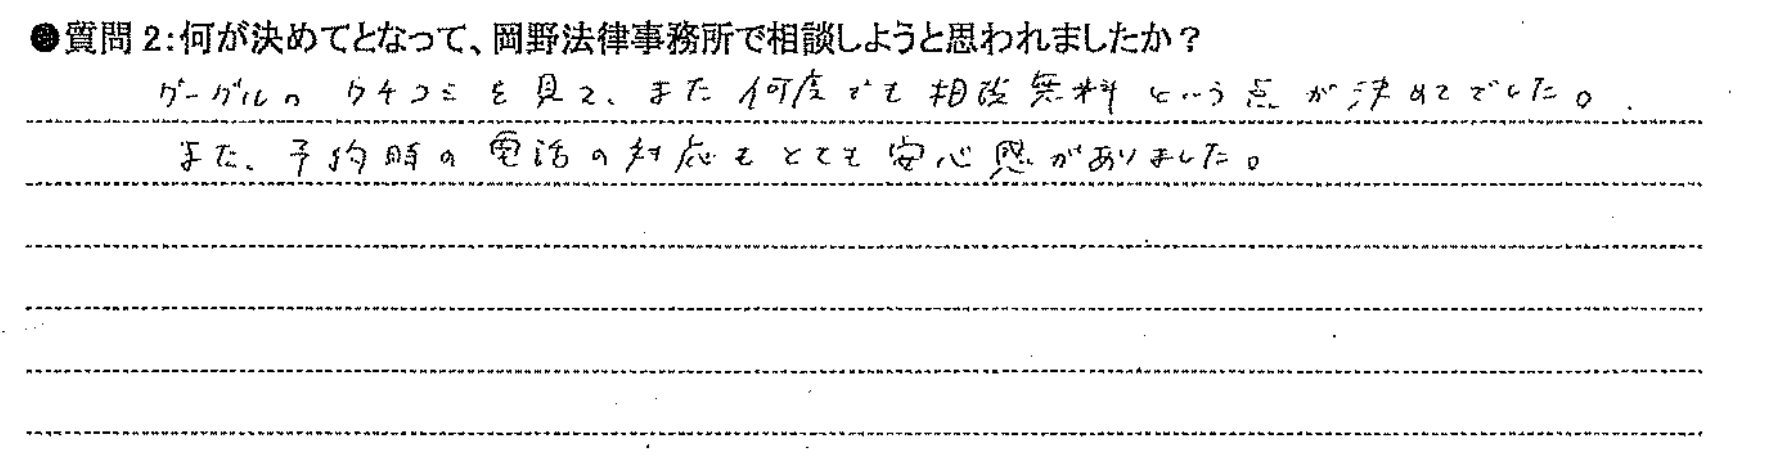 ●質問2:何が決めてとなって、岡野法律事務所で相談しようと思われましたか?
グーグルの クチコミを見て、また何度でも相談無料という点が決めてでした。
また、予約時の電話の対応もとても安心感がありました。